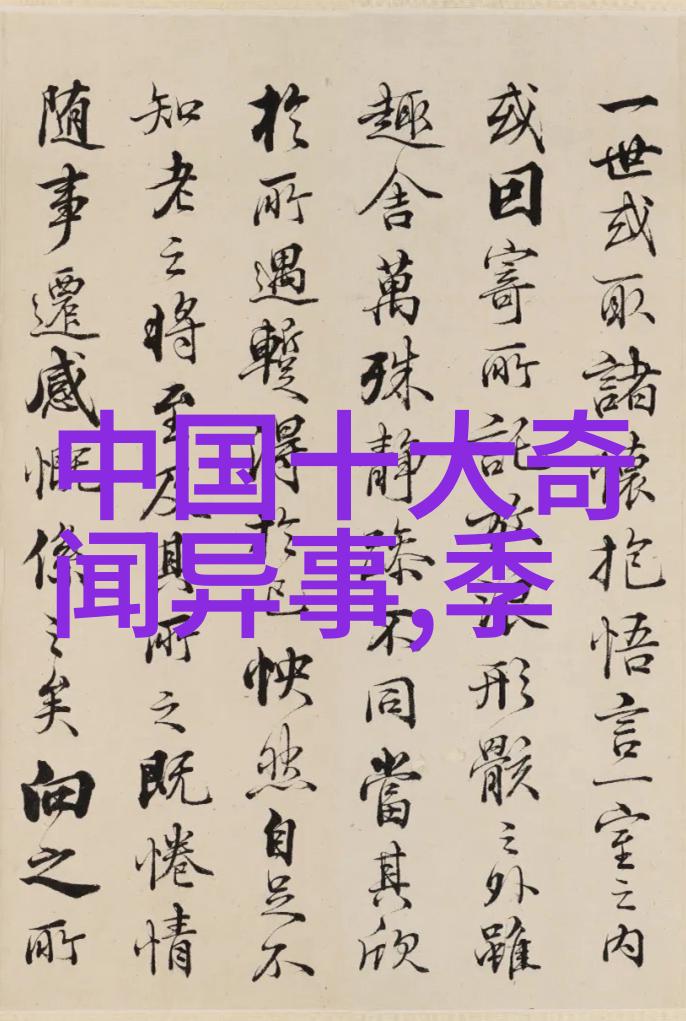 中国十大奇
闻异事,季
一世或取諸懷抱悟言一室之内
或因寄所託放浪形骸之外雖
趣舍萬殊静躁不同當其欣
於所遇蹔得於己怏然自足不
知老之將至及其所之既惓情
随事遷感慨係之矣向之所